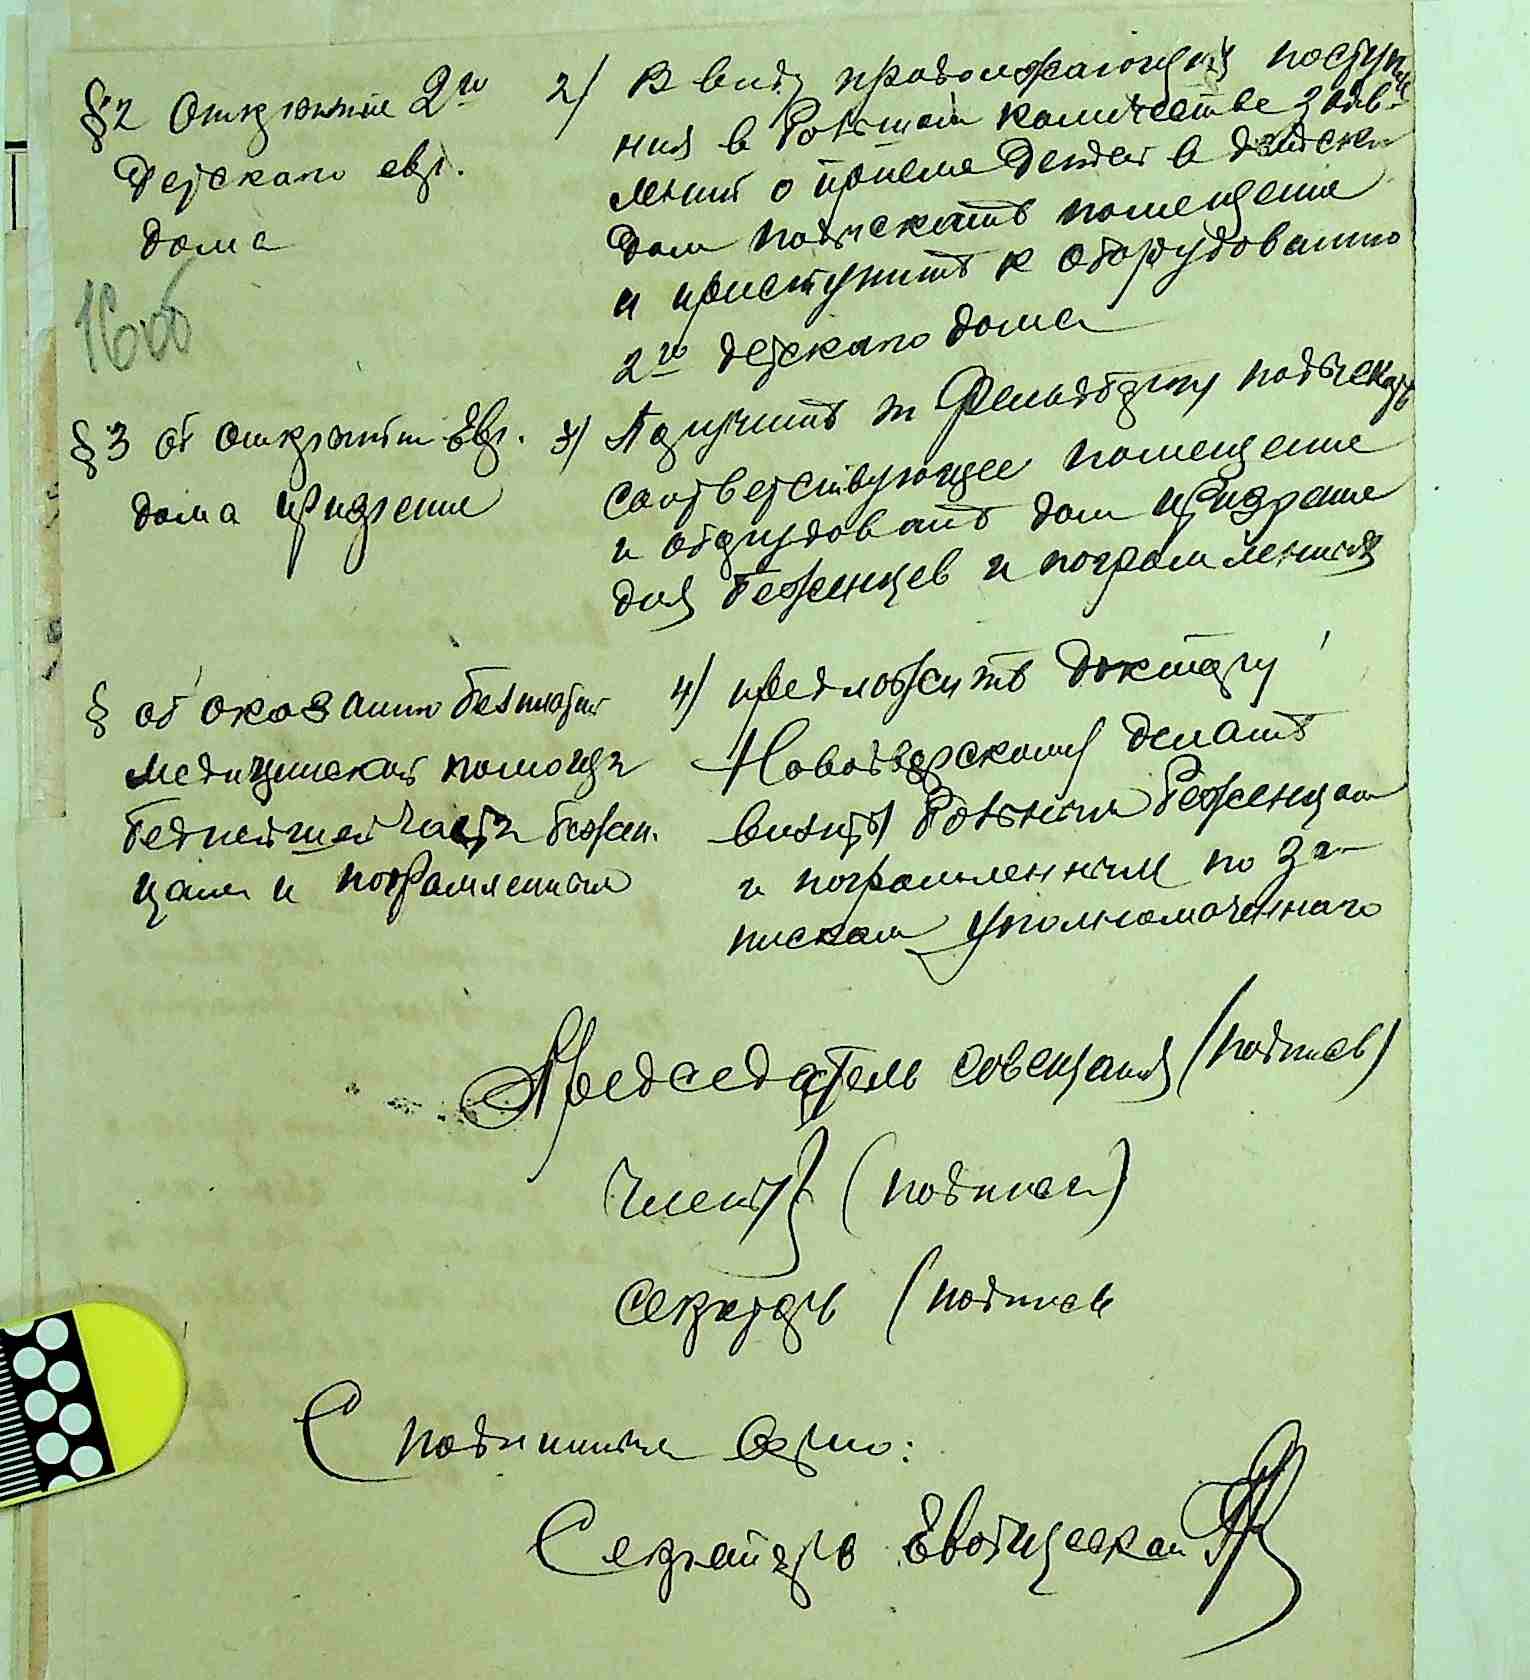 §2 Открытие 2го
Детскаго евр.
дома
16об
2) В виду продолжающихся поступле
ния в большом количестве заяв-
лений о приеме детей в детский
дом подыскать помещение
и приступить к оборудованию
2го детскаго дома
§3 об открытии Евр.
дома призрения
3) Поручить т Фельдбергу подыскать
соответствующее помещение
и оборудовать дом призрения
для беженцев и погромленных
§ об оказании бесплатн
медицинской помощи
беднейшей части бежен.
цам и погромленным
4) предложить доктору
Новодворскому делать
визиты больным беженцам
и погромленным по за-
пискам уполномоченнаго
Председатель совещания (подпись)
Члены (подписи)
секретарь (подпись
С подлинным верно:
Секретарь Евобщеском